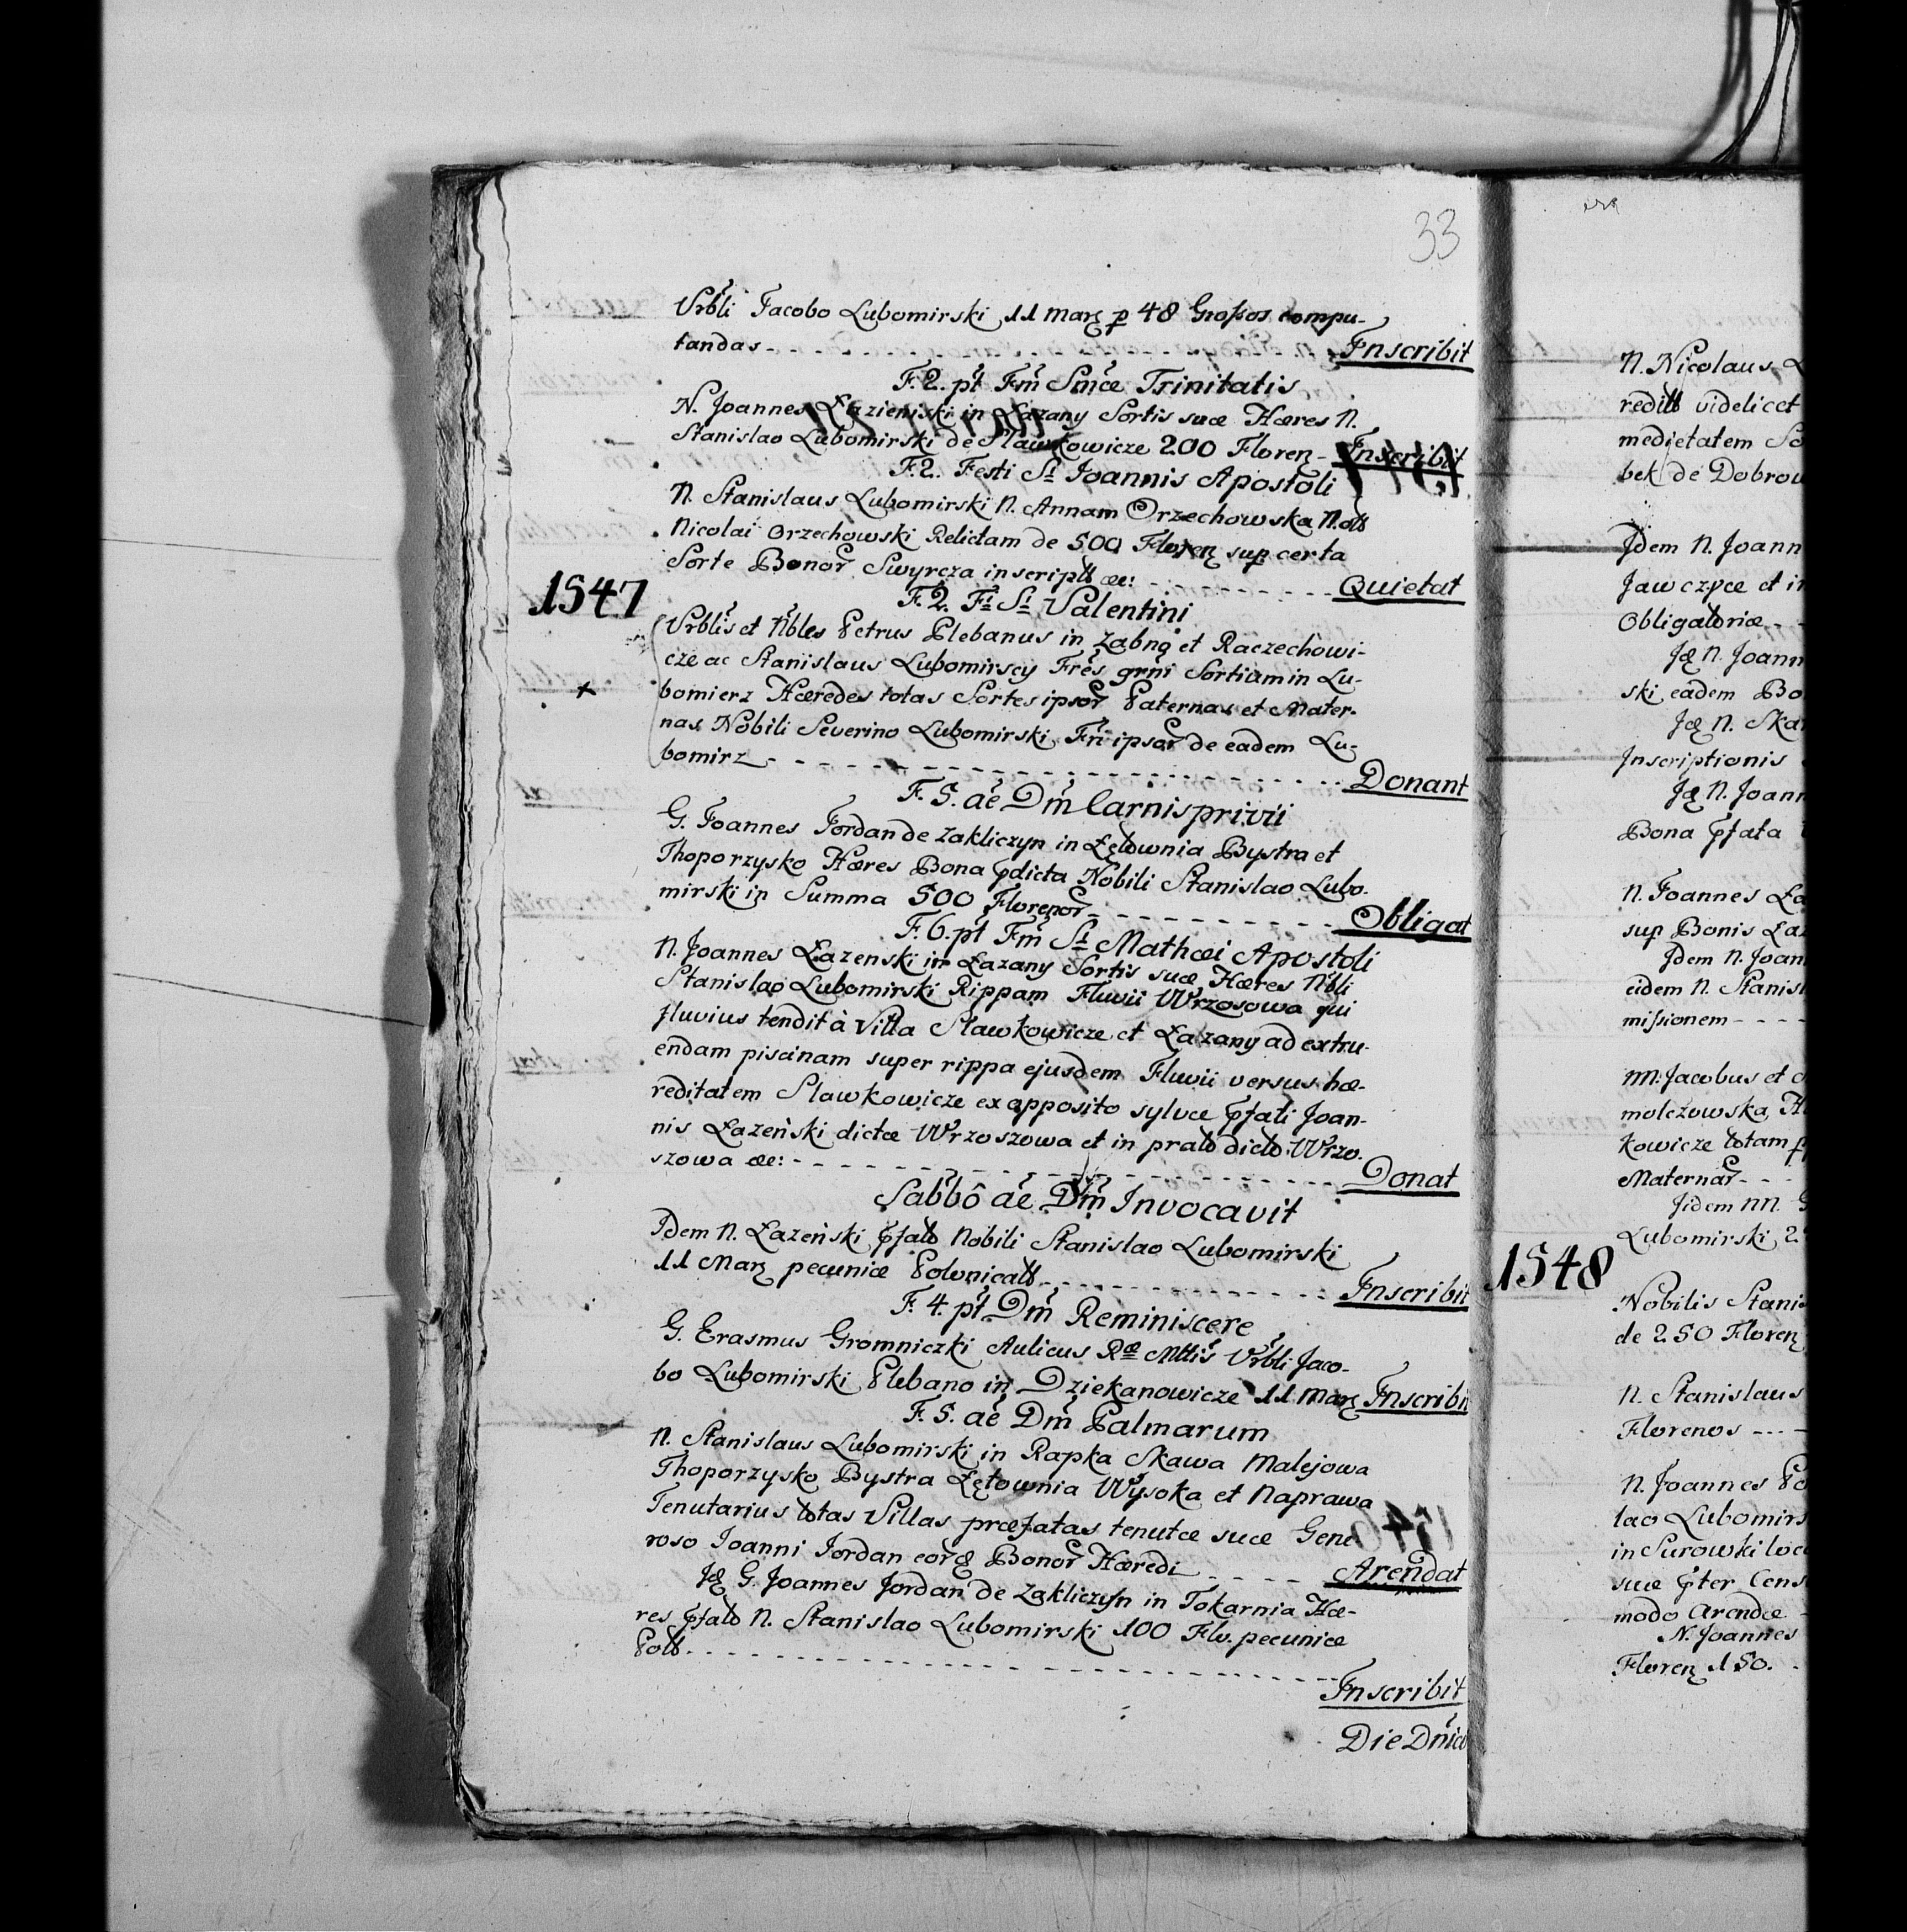 33
Vrbli Jacobo Lubomirski 11 març p 48 Großos compu-
tandas - - - - Inscribit
F. 2. pt Fm Smæ Trinitatis
N. Joannes Łazieniski in Łazany Sortis suæ Hæres N.
Stanislao Lubomirski de Sławkowicze 200 Floren - Inscribit
F. 2. Festi Si Joannis Apostoli
N. Stanislaus Lubomirski N. Annam Orzechowska N. olb
Nicolai Orzechowski Relictam de 500 Floren sup certa
Sorte Bonor Swyrcza inscriptb &c: - - - - Quietat
1547
F. 2. Fi Si Valentini
Vrblis et Nbles Petrus Plebanus in Zabno et Raczechowi-
cze ac Stanislaus Lubomirscy Frēs grñi Sortium in Lu-
bomierz Hæredes totas Sortes ipsor Paternas et Mater-
nas Nobili Severino Lubomirski Fri ipsor de eadem Lu-
bomirz - - - - Donant
F. 5. aē Dm̄ Carnisprivii
G. Joannes Jordan de Zakliczyn in Łętownia Bystra et
Thoporzysko Hæres Bona pdicta Nobili Stanislao Lubo-
mirski in Summa 500 Florenor - - - - Obligat
F. 6. pt Fm Si Mathæi Apostoli
N. Joannes Łazenski in Łazany Sortis suæ Hæres Nbli
Stanislao Lubomirski Rippam Fluvii Wrzosowa qui
fluvius tendit à Villa Sławkowicze et Łazany ad extru-
endam piscinam super rippa ejusdem Fluvii versus hæ-
reditatem Sławkowicze ex apposito sylvæ pfati Joan-
nis Łazeński dictæ Wrzoszowa et in prato dicto Wrzo-
szowa &c: - - - - Donat
Sabbô aē Dm̄ Invocavit
Idem N. Łazeński pfato Nobili Stanislao Lubomirski
11 Març pecuniæ Polonicalb - - - - Inscribit
F. 4. pt Dm̄ Reminiscere
G. Erasmus Gromniczki Aulicus Ræ Mttis Vrbli Jaco-
bo Lubomirski Plebano in Dziekanowicze 11 març Inscribit
F. 5. aē Dm̄ Palmarum
N. Stanislaus Lubomirski in Rapka Skawa Malejowa
Thoporzysko Bystra Łętownia Wysoka et Naprawa
Tenutarius totas Villas præfatas tenutæ suæ Gene-
roso Joanni Jordan eorq Bonor Hæredi - - - - Arendat
Jq G. Joannes Jordan de Zakliczyn in Tokarnia Hæ-
res pfato N. Stanislao Lubomirski 100 Flo. pecuniæ
Polb - - - - Inscribit
Die Dnico
N. Nicolaus
reditb videlicet
medietatem
bek de Dobrow
Idem N. Joann
Jawczyce et in
Obligatoriæ - -
Jq N. Joann
ski eadem Bo
Jq N. Skar
Inscriptionis
Jq N. Joann
Bona pfata
N. Joannes Ła
sup Bonis Łaz
Idem N. Joan
eidem N. Stanisl
mißionem - - - -
NN. Jacobus et
molczowska Hæ
kowicze totam
Maternar - - -
Jidem NN.
Lubomirski 2
1548
Nobilis Stanis
de 250 Floren
N. Stanislaus
Florenos - - -
N. Joannes
lao Lubomirs
in Surowki
suæ pter Cens
modo Arendæ -
N. Joannes
Floren 150. -